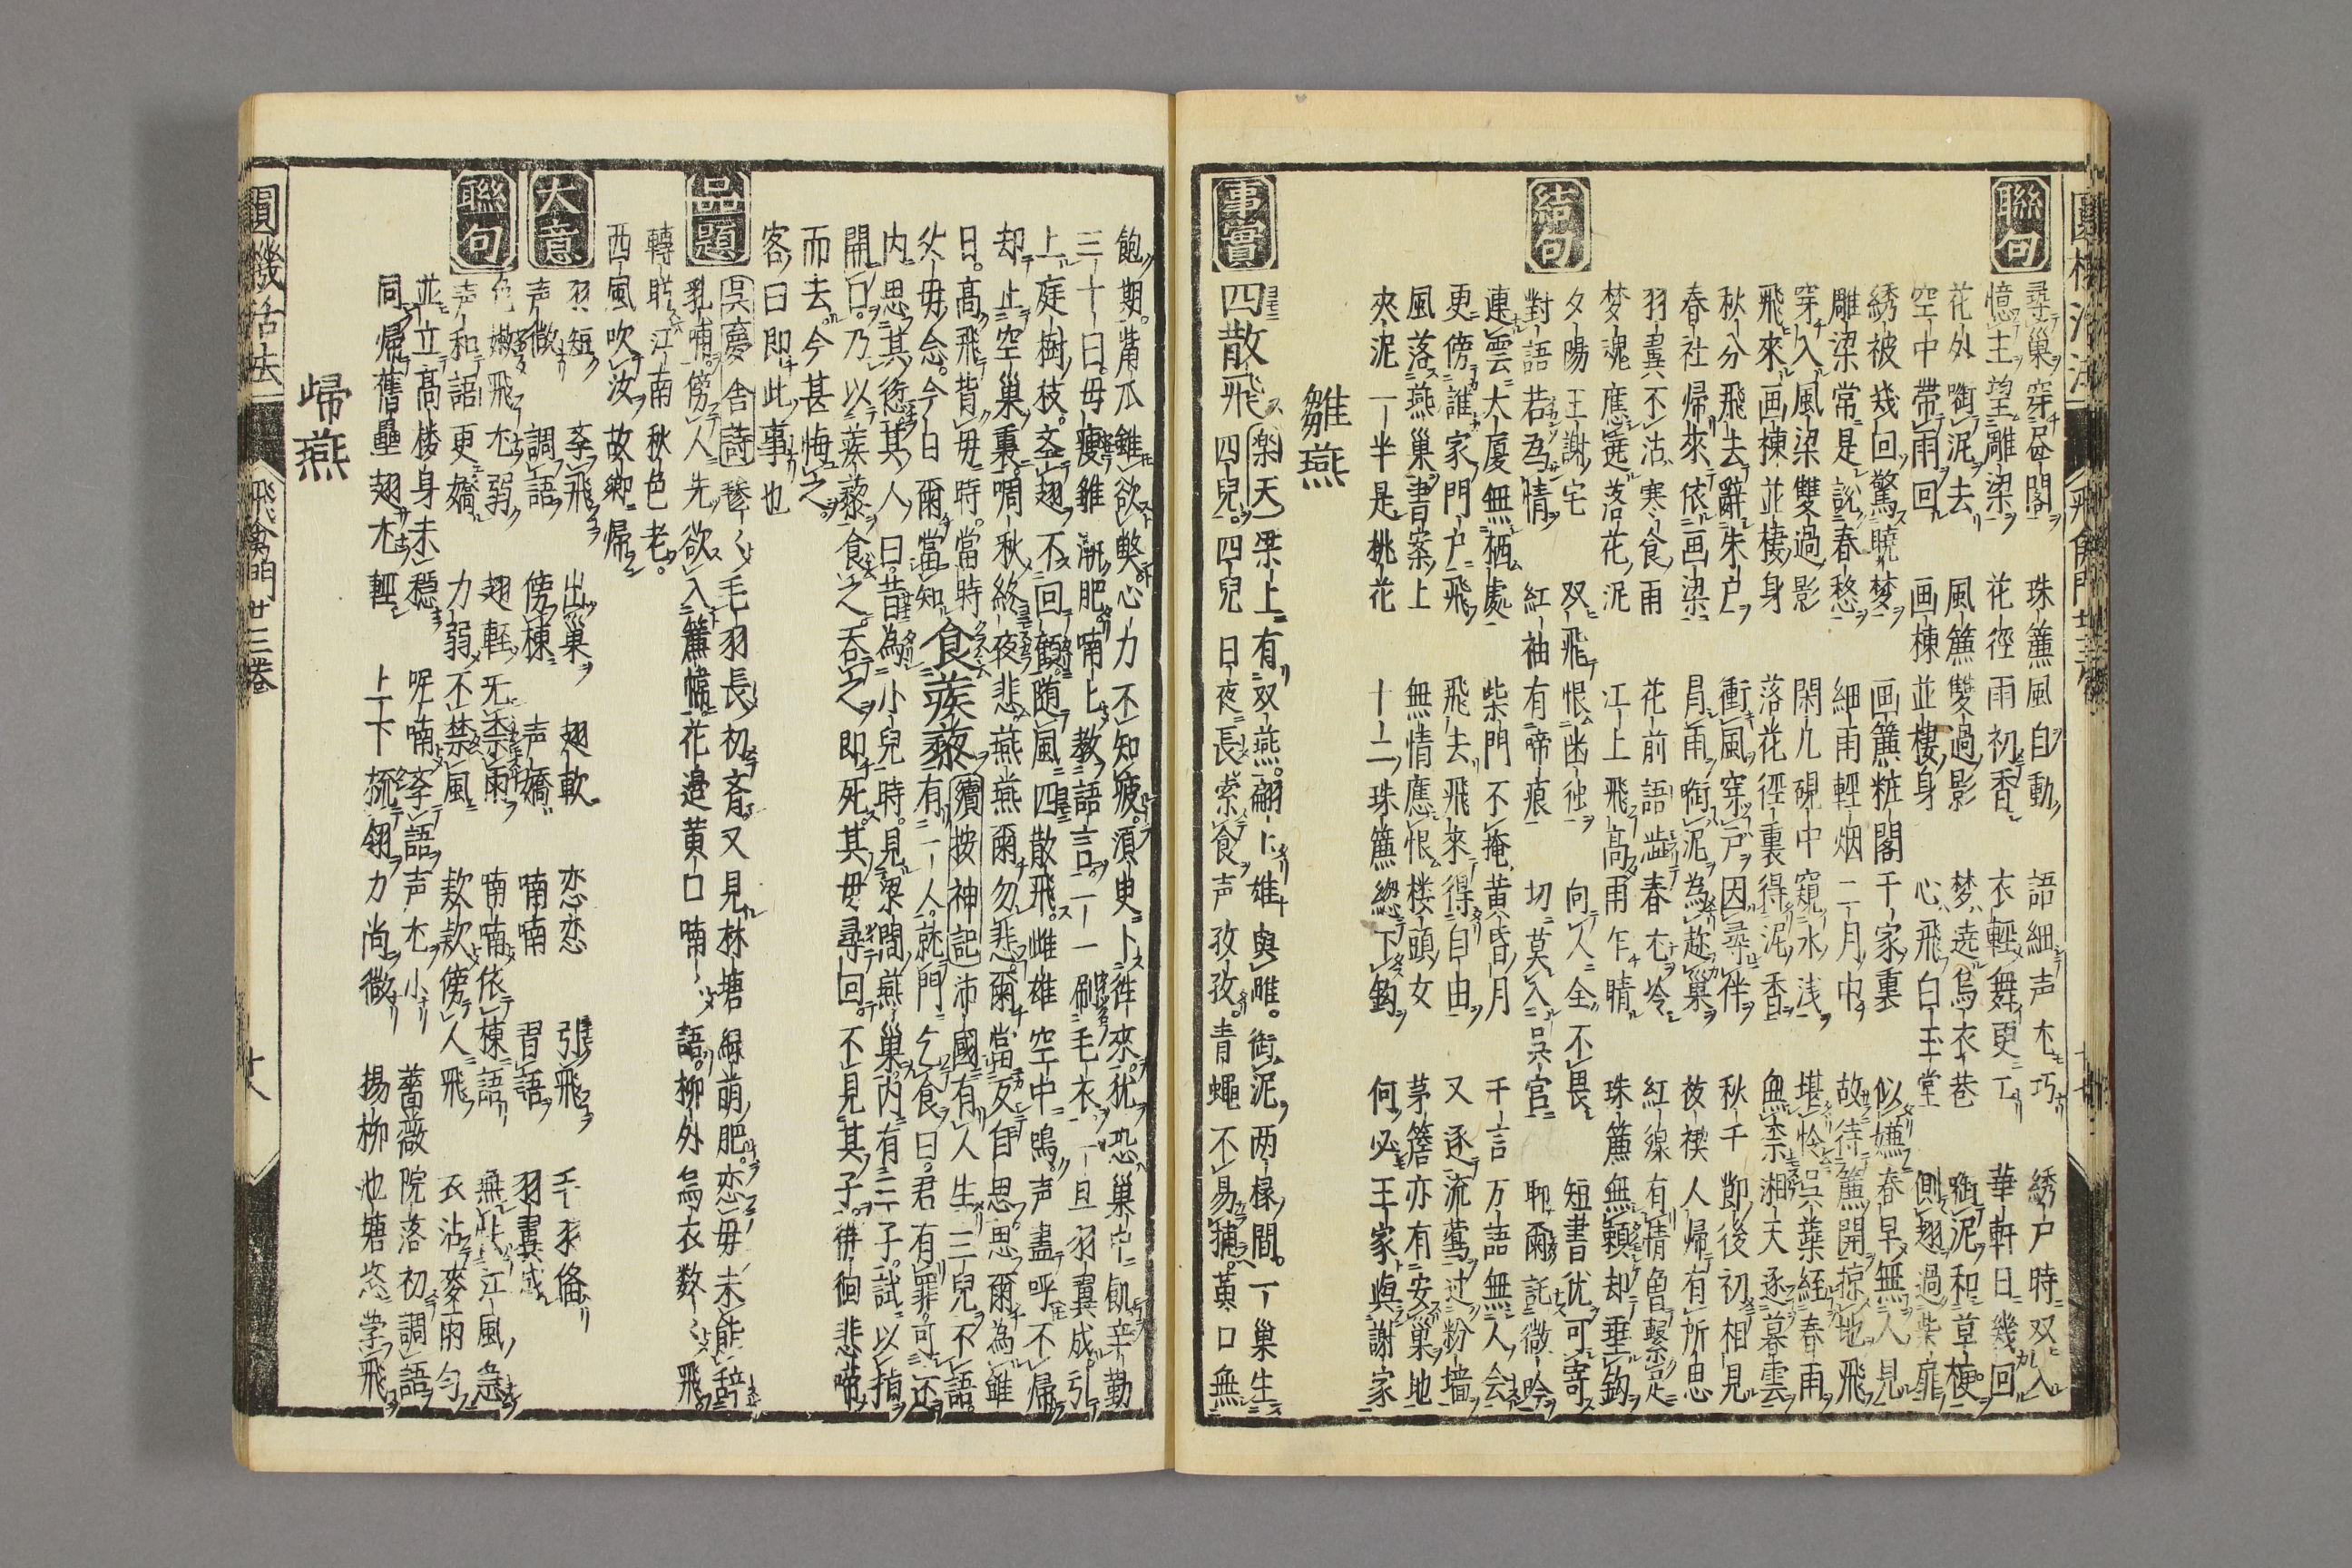 聯句
尋巢穿昼閣 珠簾風自動 語細声尤巧 綉户時双入
憶主望雕梁 花徑雨初香 衣輕舞更工 華軒日幾回
花外啣泥去 風簾雙過影 梦遶烏衣巷 啣泥和草梗
空中帶雨回 画棟並棲身 心飛白玉堂 側翅過柴扉
綉被幾回驚曉梦 画簾粧閣千家裏 似嫌春早無人見
雕梁常是說春愁 細雨輕烟二月中 故待簾開掠地飛
穿入風梁雙過影 閑几硯中窺水浅 堪怜呉蘂經春雨
飛來画棟並棲身 落花徑裏得泥香 無柰湘天逐暮雲
秋分飛去辭朱户 衝風穿户因尋伴 秋千節後初相見
春社帰來依画梁 冐雨啣泥為趂巢 祓禊人帰有所思
羽翼不沾寒食雨 花前語澁春尤冷 紅線有情曾繫足
梦魂應遶落花泥 江上飛高雨乍晴 珠簾無頼却垂鈎
結句
夕陽王謝宅 双飛恨幽独 向人全不畏 短書优可寄
對語若為情 紅袖有啼痕 切莫入呉宫 聊爾託微吟
連雲大廈無栖處 柴門不掩黄昏月 千言万語無人会
更傍誰家門户飛 飛去飛來得自由 又逐流鶯过粉墻
風落燕巢書案上 無情應恨楼頭女 茅簷亦有安巢地
夾泥一半是桃花 十二珠簾緫下鈎 何必王家與謝家
雛燕
事實
四散飛 樂天 梁上有双燕。翩〻雄與雌。啣泥両椽間。一巢生
四兒。四兒日夜長索食声孜孜。青蠅不易捕。黄口無
飽期。觜爪雖欲弊。心力不知疲。須臾十徃來。犹恐巢中飢。辛勤
三十日。母瘦雛漸肥。喃〻教語言。一一刷毛衣。一旦羽翼成。引
上庭樹枝。㪯翅不回顧。随風四散飛。雌雄空中鳴。声盡呼不帰
却止空巢裏。啁秋終夜悲。燕燕爾勿悲。爾當反自思。思爾為雛
日。高飛背母時。當時父母念。今日爾當知
食蒺藜 續按神記 沛國有人生三兒。不語。
有一人。就門乞食曰。君有罪。可还
内思其愆。其人曰。昔為小兒時。見梁間燕巢。内有三子。試以指
開口。乃以蒺藜食之。吞之即死。其母尋回。不見其子。徘徊悲啼
而去。今甚悔之。
客曰即此事也
品題
呉慶舎詩 毿〻毛羽長初斉。又見林塘綠萌肥。恋母未能辞
乳哺。傍人先欲入簾幃。花邉黄口喃〻語。柳外烏衣数〻飛。
轉盻江南秋色老。
西風吹汝故鄉帰
大意
羽短 㪯飛 出巢 翅軟 恋恋 引飛 毛羽俻
声微 調語 傍棟 声嬌 喃喃 習語 羽翼成
聯句
色嫩飛尤弱 翅輕无柰雨 喃喃依棟語 無悲江風急
声和語更嬌 力弱不禁風 欵欵傍人飛 衣沾麥雨匀
並立高楼身未穩 呢喃㪯語声尤小 薔薇院落初調語
同帰舊壘翅尤輕 上下梳翎力尚微 楊柳池塘恣學飛
帰燕
圓機活法 飛禽門 廿三巻 廿八